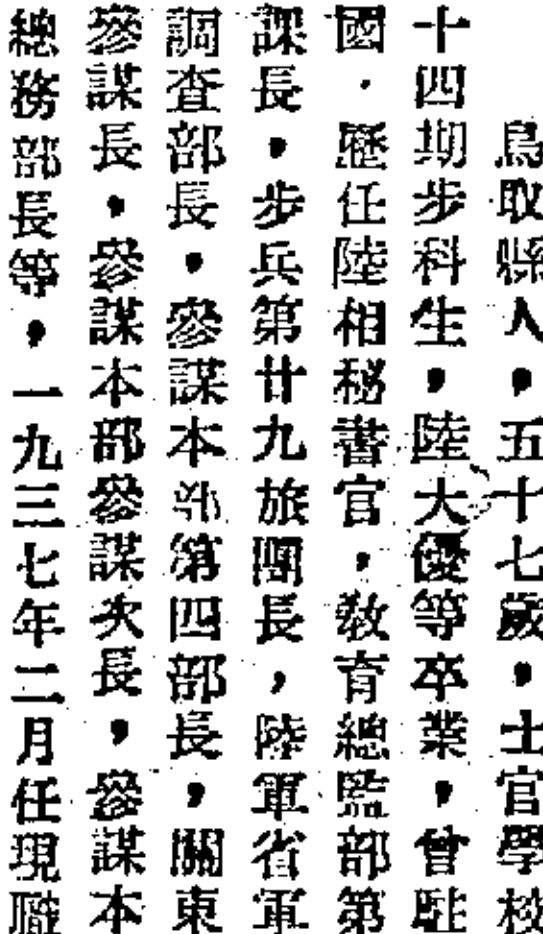 鳥取縣人，五十七歲，士官學校
十四期步科生，陸大優等卒業，曾駐
國．歷任陸相秘書官，敎育總監部第
課長，步兵第廿九旅團長，陸軍省軍
調查部長，參謀本部第四部長，關東
參謀長，參謀本部參謀次長，參謀本
總務部長等，一九三七年二月任現職